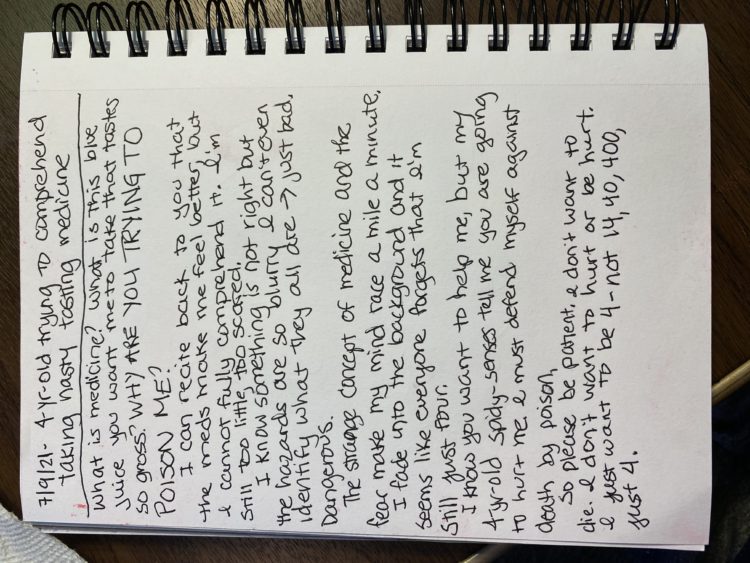 7/9/21- 4-yr-old trying to comprehend
taking nasty tasting medicine
What is medicine? What is this blue
juice you want me to take that tastes
so gross? WHY ARE YOU TRYING TO
POISON ME?
I can recite back to you that
the meds make me feel better, but
I cannot fully comprehend it. I'm
still too little, too scared.
I know something is not right but
the hazards are so blurry I can't even
identify what they all are → just bad.
Dangerous.
The strange concept of medicine and the
fear make my mind race a mile a minute.
I fade into the background and it
seems like everyone forgets that I'm
still just four.
I know you want to help me, but my
4-yr-old spidy-senses tell me you are going
to hurt me. I must defend myself against
death by poison.
So please be patient. I don't want to
die. I don't want to hurt or be hurt.
I just want to be 4-not 14, 40, 400,
just 4.